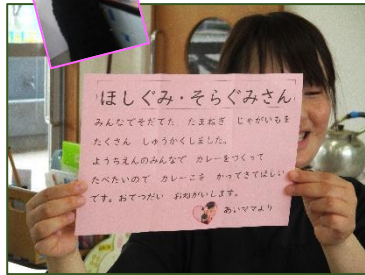 ほしぐみ・そらぐみさん
みんなでそだてた たまねぎ じゃがいもを
たくさん しゅうかくしました。
ようちえんのみんなで カレーをつくって
たべたいので カレーこを かってきてほしい
です。おてつだい おねがいします。
あいママより